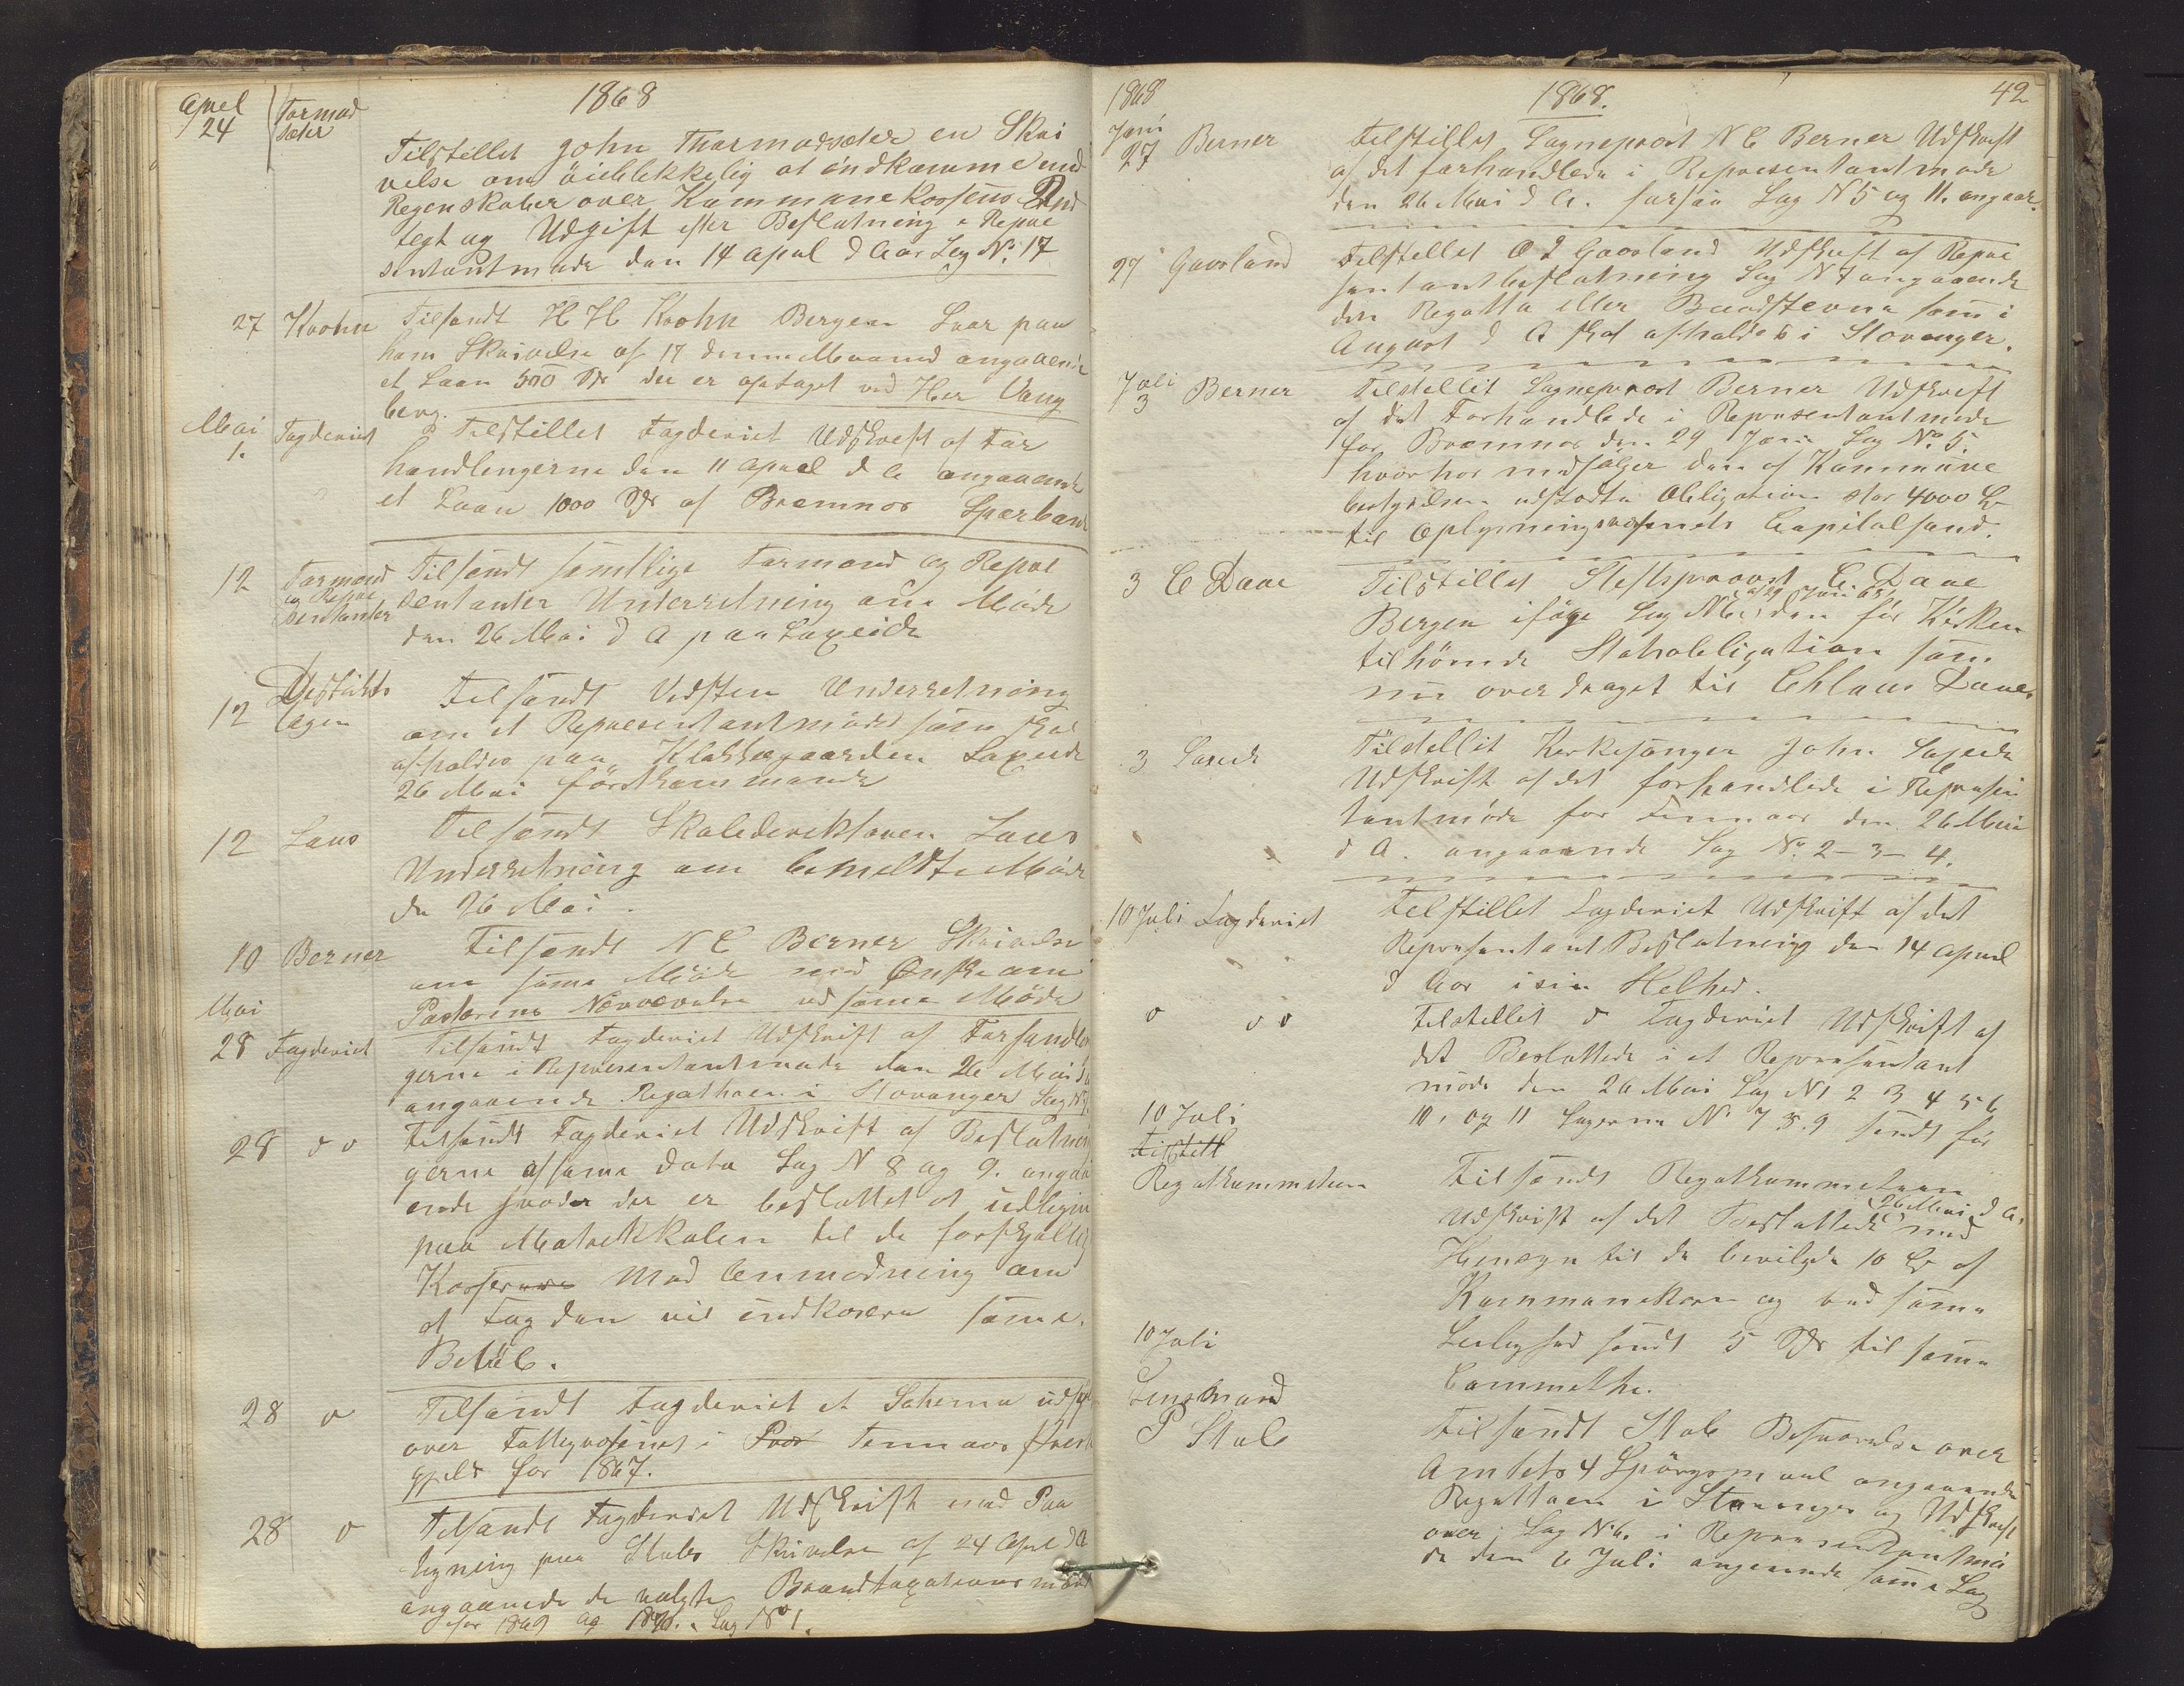 1868
April 24 Tormodsæter
Tilstillet John Thormodsæter en Skri
velse om öieblikkelig at indkomme med
Regenskaber over Kommunekassens Ind
tegt og Udgift efter Beslutning i Repre
sentantmøde den 14 April d Aar Sag No. 17
27 Krohn Tilsendt H H Krohn Bergen Svar paa
hans Skrivelse af 17 denne Maaned angaaende
et Laan 500 Spd der er optaget ved Herr Vang
berg.
Mai 1. Fogderiet Tilstillet Fogderiet Udskreft af For
handlingerne den 11 April d A angaaende
et Laan 1000 Spd af Bremnes Sparbank
12 Formænd og Repre sentanter Tilsendt samtlige Formænd og Repre
sentanter Underretning om Møde
den 26 Mai d A paa Laxeide
12 Distrikts lægen Tilsendt Vedsten Underretning
om et Representantmøde som skal
afholdes paa Klokkergaarden Laxeide
26 Mai förstkommende
12 Laus Tilsendt Skoledirektøren Laus
Underretning om bemeldte Møde
den 26 Mai.
10 Berner Tilsendt N E Berner Skrivelse
om samme Møde med Ønske om
Pastorens Nærværelse ved samme Møde
Mai
28 Fogderiet Tilsendt Fogderiet Udskrift af Forhandlin
gerne i Representantmøde den 26 Mai d A
angaaende Regathaen i Stavanger Sag No 7.
28 do Tilsendt Fogderiet Udskrift af Beslutnin
gerne af samme Dato Sag N 8 og 9. angaa
ende hvad der er besluttet at udligne
paa Matrikkulen til de forskjællige
Kasser med Anmodning om
at Fogden vil indkræve samme
Beløb.
28 do Tilsendt Fogderiet et Schema udfyldt
over Fattigvæsenet i Finnaas Præste
gjeld for 1867.
28 do Tilsendt Fogderiet Udskrift med Paa
tegning paa Stubs Skrivelse af 24 April d A
angaaende de valgte Brandtaxationsmænd
for 1869 og 1870. Sag No 1.
1868 1868. 42
Juni 27 Berner Tilstillet Sogneprost N E Berner Udskreft
af det forhandlede i Representantmøde
den 26 Mai d A. forsaa Sag N 5 og 11. angaar.
27 Gaasland Tilstillet O I Gaasland Udskreft af Repre
sentantbeslutning Sag N 7 angaaende
den Regatta eller Baadstevne som i
August d A skal afholdes i Stavanger.
Juli 3 Berner Tilstellet Sogneprost Berner Udskreft
af det Forhandlede i Representantmøde
for Bremnes den 29 Juni Sag No. 5.
hvorhos medfølger den af Kommune
bestyrelsen udstedte Obligation stor 4000 Spd
til Oplysningsvæsenets Capitalfond.
3 C Daae Tilstillet Stiftsprovst C. Daae
Bergen ifølge Sag N 6 af 29 Juni 68 den for Kirken
tilhörende Statsobligation som
nu overdraget til Chlaus Daae
3 Laxeide Tilstellet Kirkesanger John Laxeide
Udskrift af det forhandlede i Represen
tantmøde for Finnaas den 26 Mai
d A. angaaende Sag No. 2 - 3 - 4.
10 Juli Fogderiet Tilstillet Fogderiet Udskrift af det
Representant Beslutning den 14 April
d Aar i sin Helhed.
do do Tilstillet do Fogderiet Udskrift af
det Besluttede i et Representant
møde den 26 Mai Sag N 1 2 3 4 5 6
10. og 11 Sagerne No 7 8. 9 sendt før
10 Juli
Tilstill
Regatkommeteen Tilsendt Regatkommeteen
Udskrift af det Besluttede 26 Mai d A. med
Hensyn til de bevilgede 10 Spd af
Kommunekassen og ved samme
Leilighed sendt 5 Spd til samme
Committe.
10 Juli
Lensmand
P Stub Tilsendt Stub Besvarelse over
Amtets 4 Spörgsmaal angaaende
Regattaen i Stavanger og Udskreft
over Sag N 6. i Representantmö
de den 6 Juli angaaende samme Sag